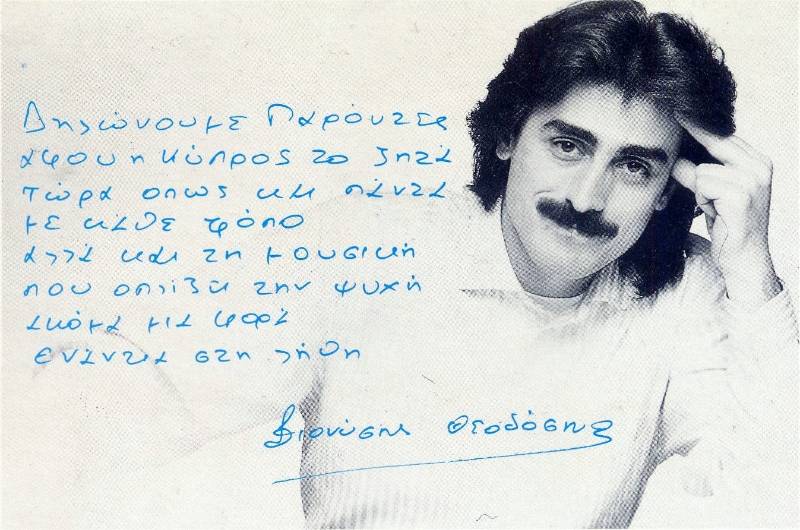 Δηλώνουμε Παρόντες
αφου η Κύπρος το ζητά
τώρα οπως και πάντα
με κάθε τρόπο
αλλά και τη μουσική
που οπλίζει την ψυχή
ακόμα μια φορά
ενάντια στη λήθη
Διονύσης Θεοδόσης